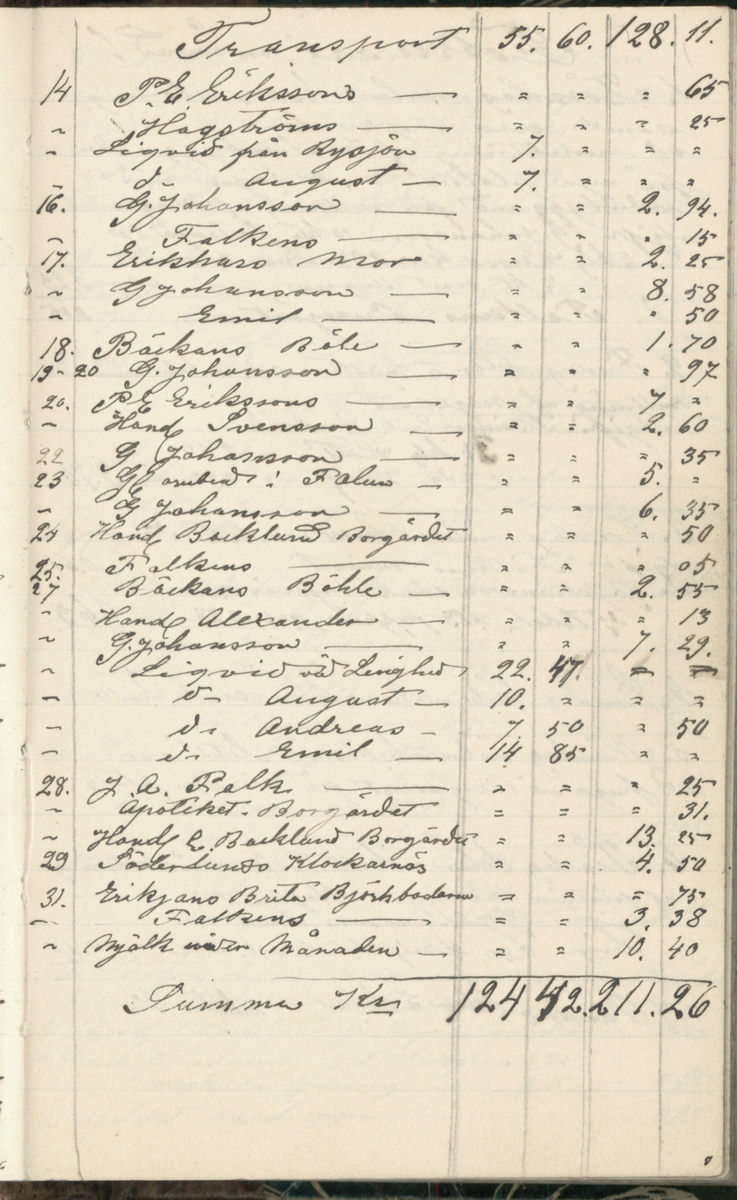 Transport 55. 60. 128. 11.
14 P. E. Erikssons — " " " 65
" Hagströms — " " " 25
" Liqvid från Rysjön 7. " " "
" d- August — 7. " " "
16. G. Johansson — " " 2. 94.
" Falkens — " " " 15
17. Erikhars Mor " " 2. 25
" G Johansson — " " 8. 58
" Emil — " " " 50
18. Bäckans Böle — " " 1. 70
19-20 G. Johansson — " " " 97
20. P E Erikssons — " " 7 "
" Hand Svensson — " " 2. 60
22 G Johansson — " " " 35
23 i Falun - " " 5. "
" G Johansson — " " 6. 35
24 Hand Backlund Borgärdet " " " 50
25. Falkens — " " " 05
27 Bäckans Böhle — " " 2. 55
" Hand Alexander — " " " 13
" G. Johansson — " " 7. 29.
" Liqvid 22. 47. " "
" d- August — 10. " " "
" d- Andreas - 7. 50 " 50
" d- Emil — 14 85 " "
28. J. A. Falk — " " " 25
" Apoteket. Borgärdet " " " 31.
" Hand E. Backlund Borgärdet " " 13. 25
29 Söderlunds Klockarnäs " " 4. 50
31. Erikjans Brita Björkbodarna " " " 75
" Falkens — " " 3. 38
" Mjölk Månaden — " " 10. 40
Summa Kr 124 42. 211. 26